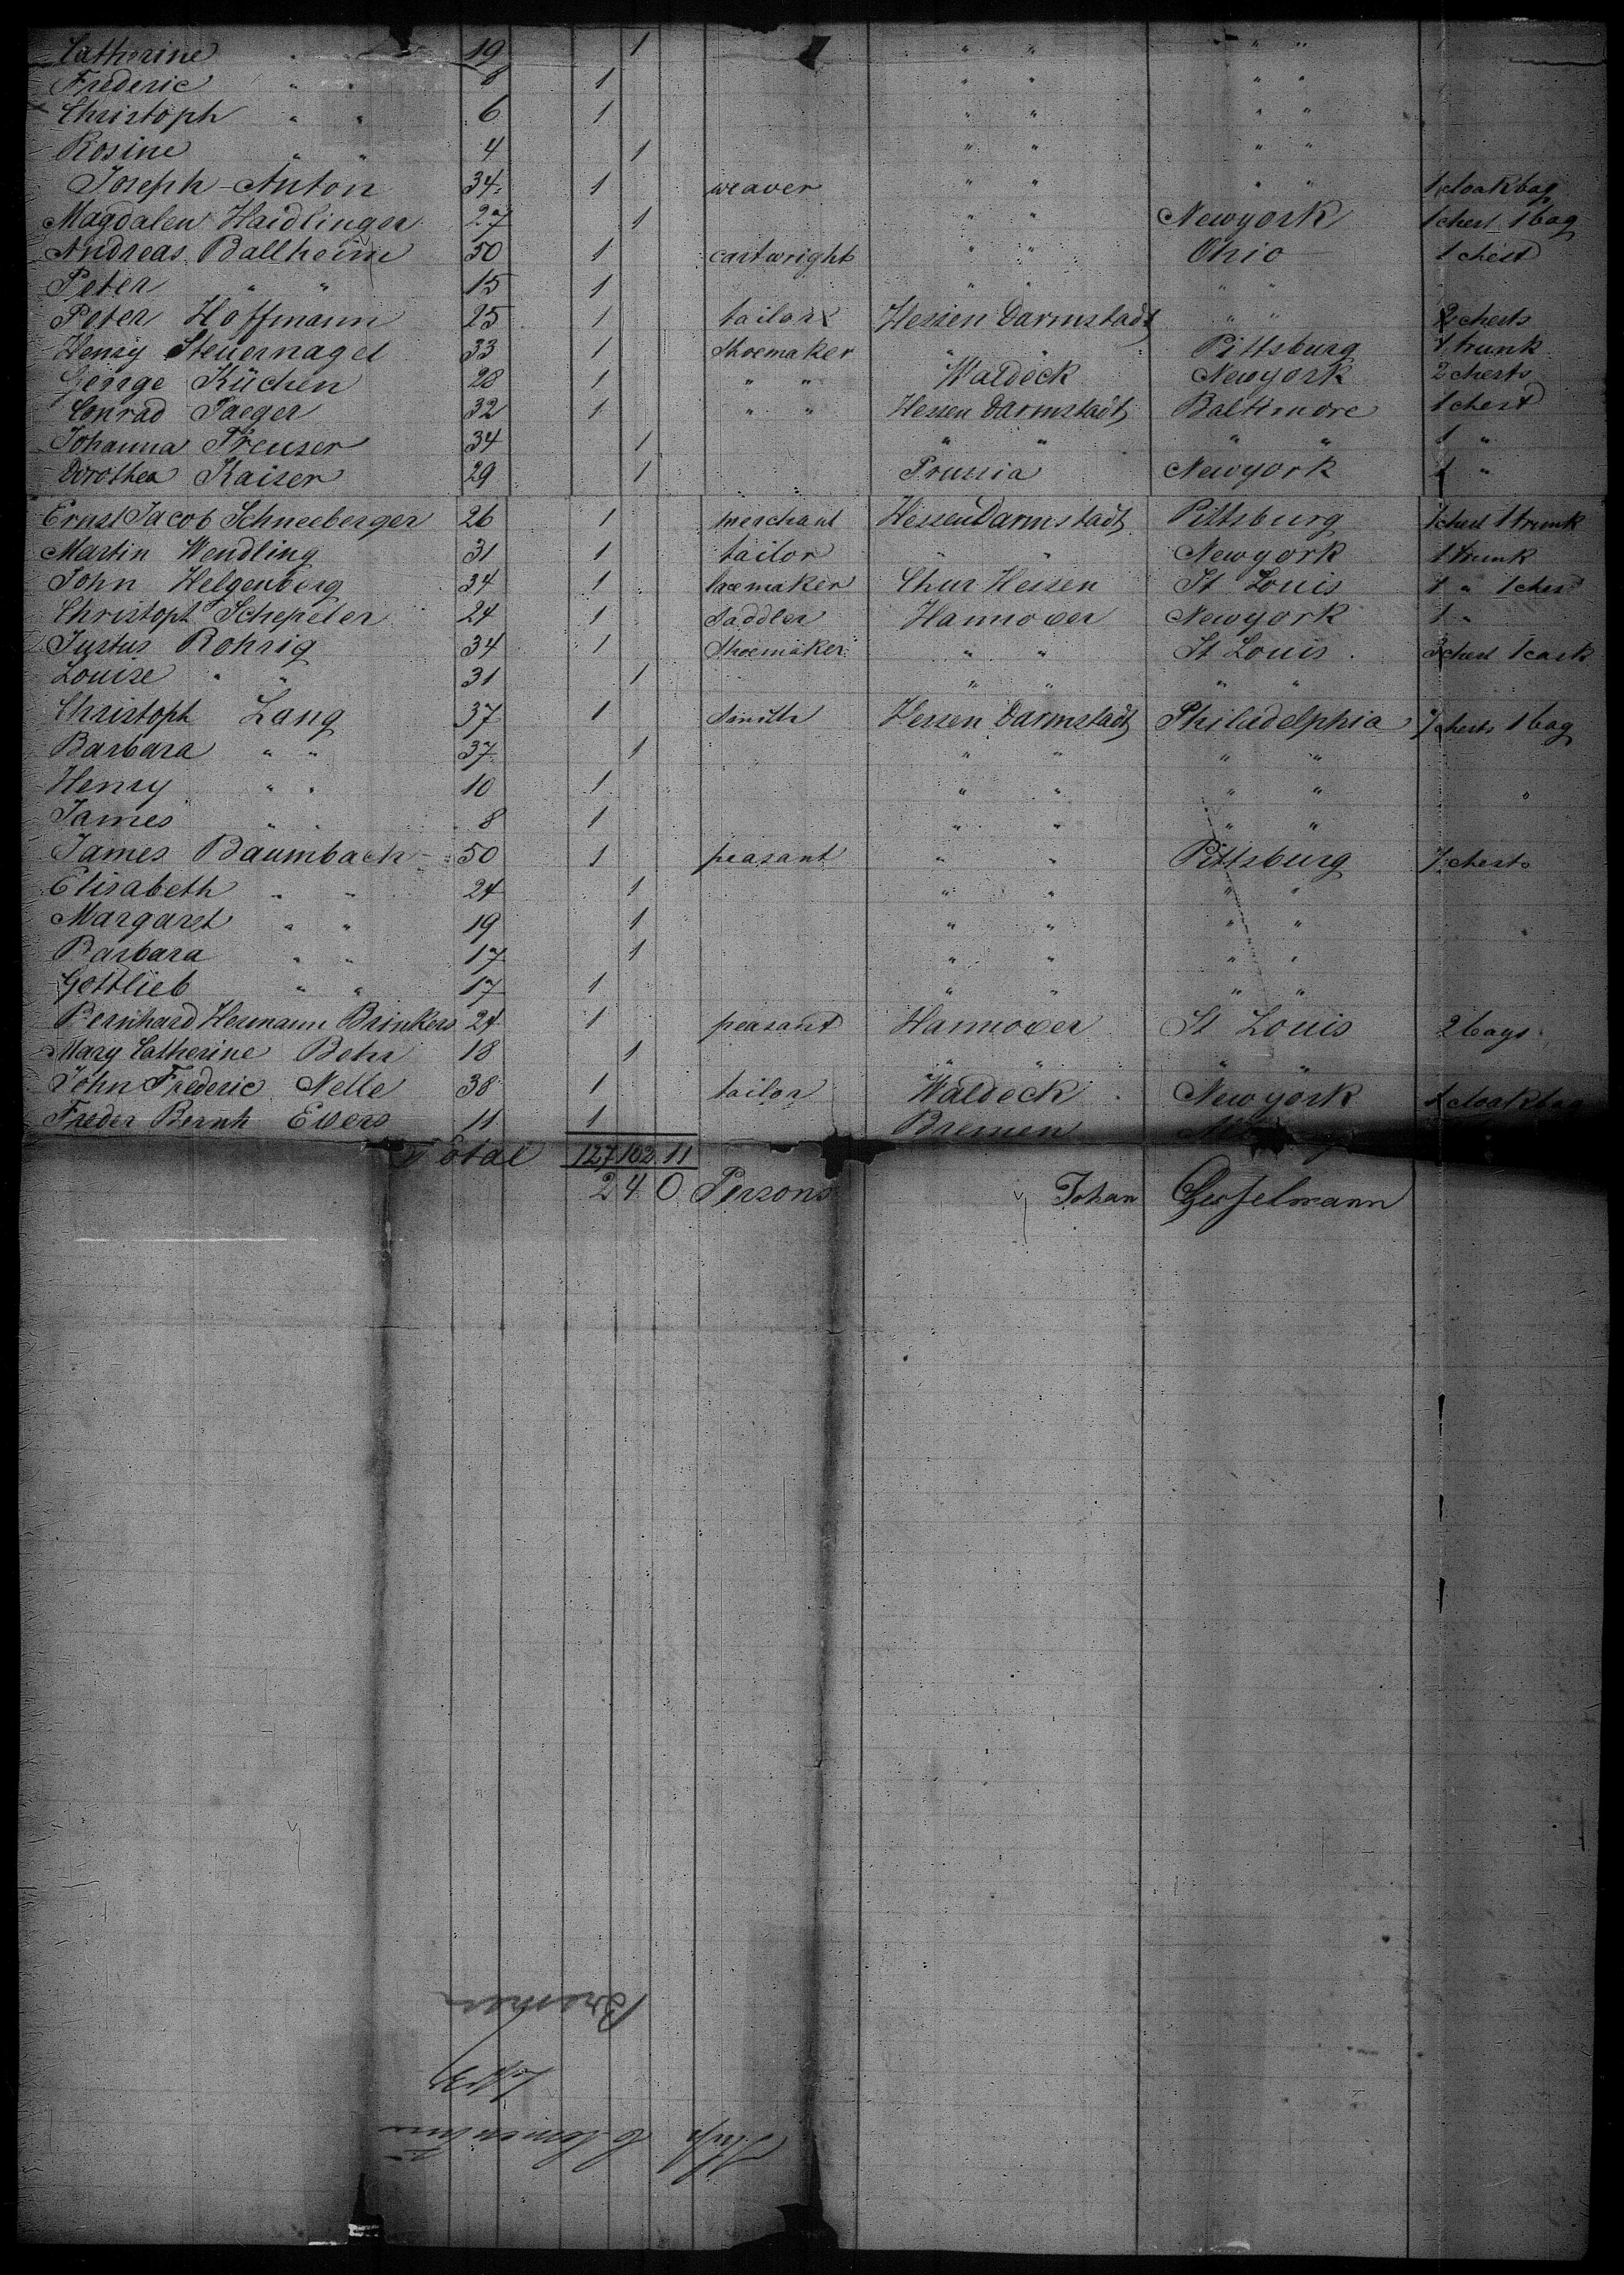 Catherine " " 19 1 " " " "
Frederic " " 8 1 " " " "
Christoph " " 6 1 " " " "
Rosine " " 4 1 " " " "
Joseph Anton 34 1 weaver " " " " 1 cloakbag
Magdalen Haidlinger 27 1 " " Newyork 1 chest 1 bag
Andreas Ballheim 50 1 cartwright " " Ohio 1 chest
Peter " " 15 1 " " " "
Peter Hoffmann 25 1 tailor Hessen Darmstadt " " 2 chests
Henry Steuernagel 33 1 Shoemaker " " Pittsburg 1 trunk
George Küchen 28 1 " " Waldeck Newyork 2 chests
Conrad Jaeger 32 1 " " Hessen Darmstadt Baltimore 1 chest
Johanna Preuser 34 1 " " " " 1 "
Dorothea Kaiser 29 1 Prussia Newyork 1 "
Ernst Jacob Schneeberger 26 1 merchant Hessen Darmstadt Pittsburg 1 chest 1 trunk
Martin Wendling 31 1 tailor " " Newyork 1 trunk
John Helgenberg 34 1 lacemaker Chur Hessen St Louis 1 " 1 chest
Christoph Schepeler 24 1 Saddler Hannover Newyork 1 "
Justus Rohrig 34 1 Shoemaker " " St Louis 3 chest 1 cask
Louise " " 31 1 " " " "
Christoph Lang 37 1 Smith Hessen Darmstadt Philadelphia 7 chests 1 bag
Barbara " " 37 1 " " " "
Henry " " 10 1 " " " "
James " " 8 1 " " " "
James Baumbach 50 1 peasant " " Pittsburg 7 chests
Elisabeth " " 24 1 " " " "
Margaret " " 19 1 " " " "
Barbara " " 17 1 " " " "
Gottlieb " " 17 1 " " " "
Bernhard Hermann Brinkers 24 1 peasant Hannover St Louis 2 bags
Mary Catherine Behr 18 1 " " " "
John Frederic Nelle 38 1 tailor Waldeck Newyork 1 cloakbag
Freder Bernh Evers 11 1 Bremen
Total 127 102 11
240 Persons Johan Gerselmann
Bremen
Ship Clementine